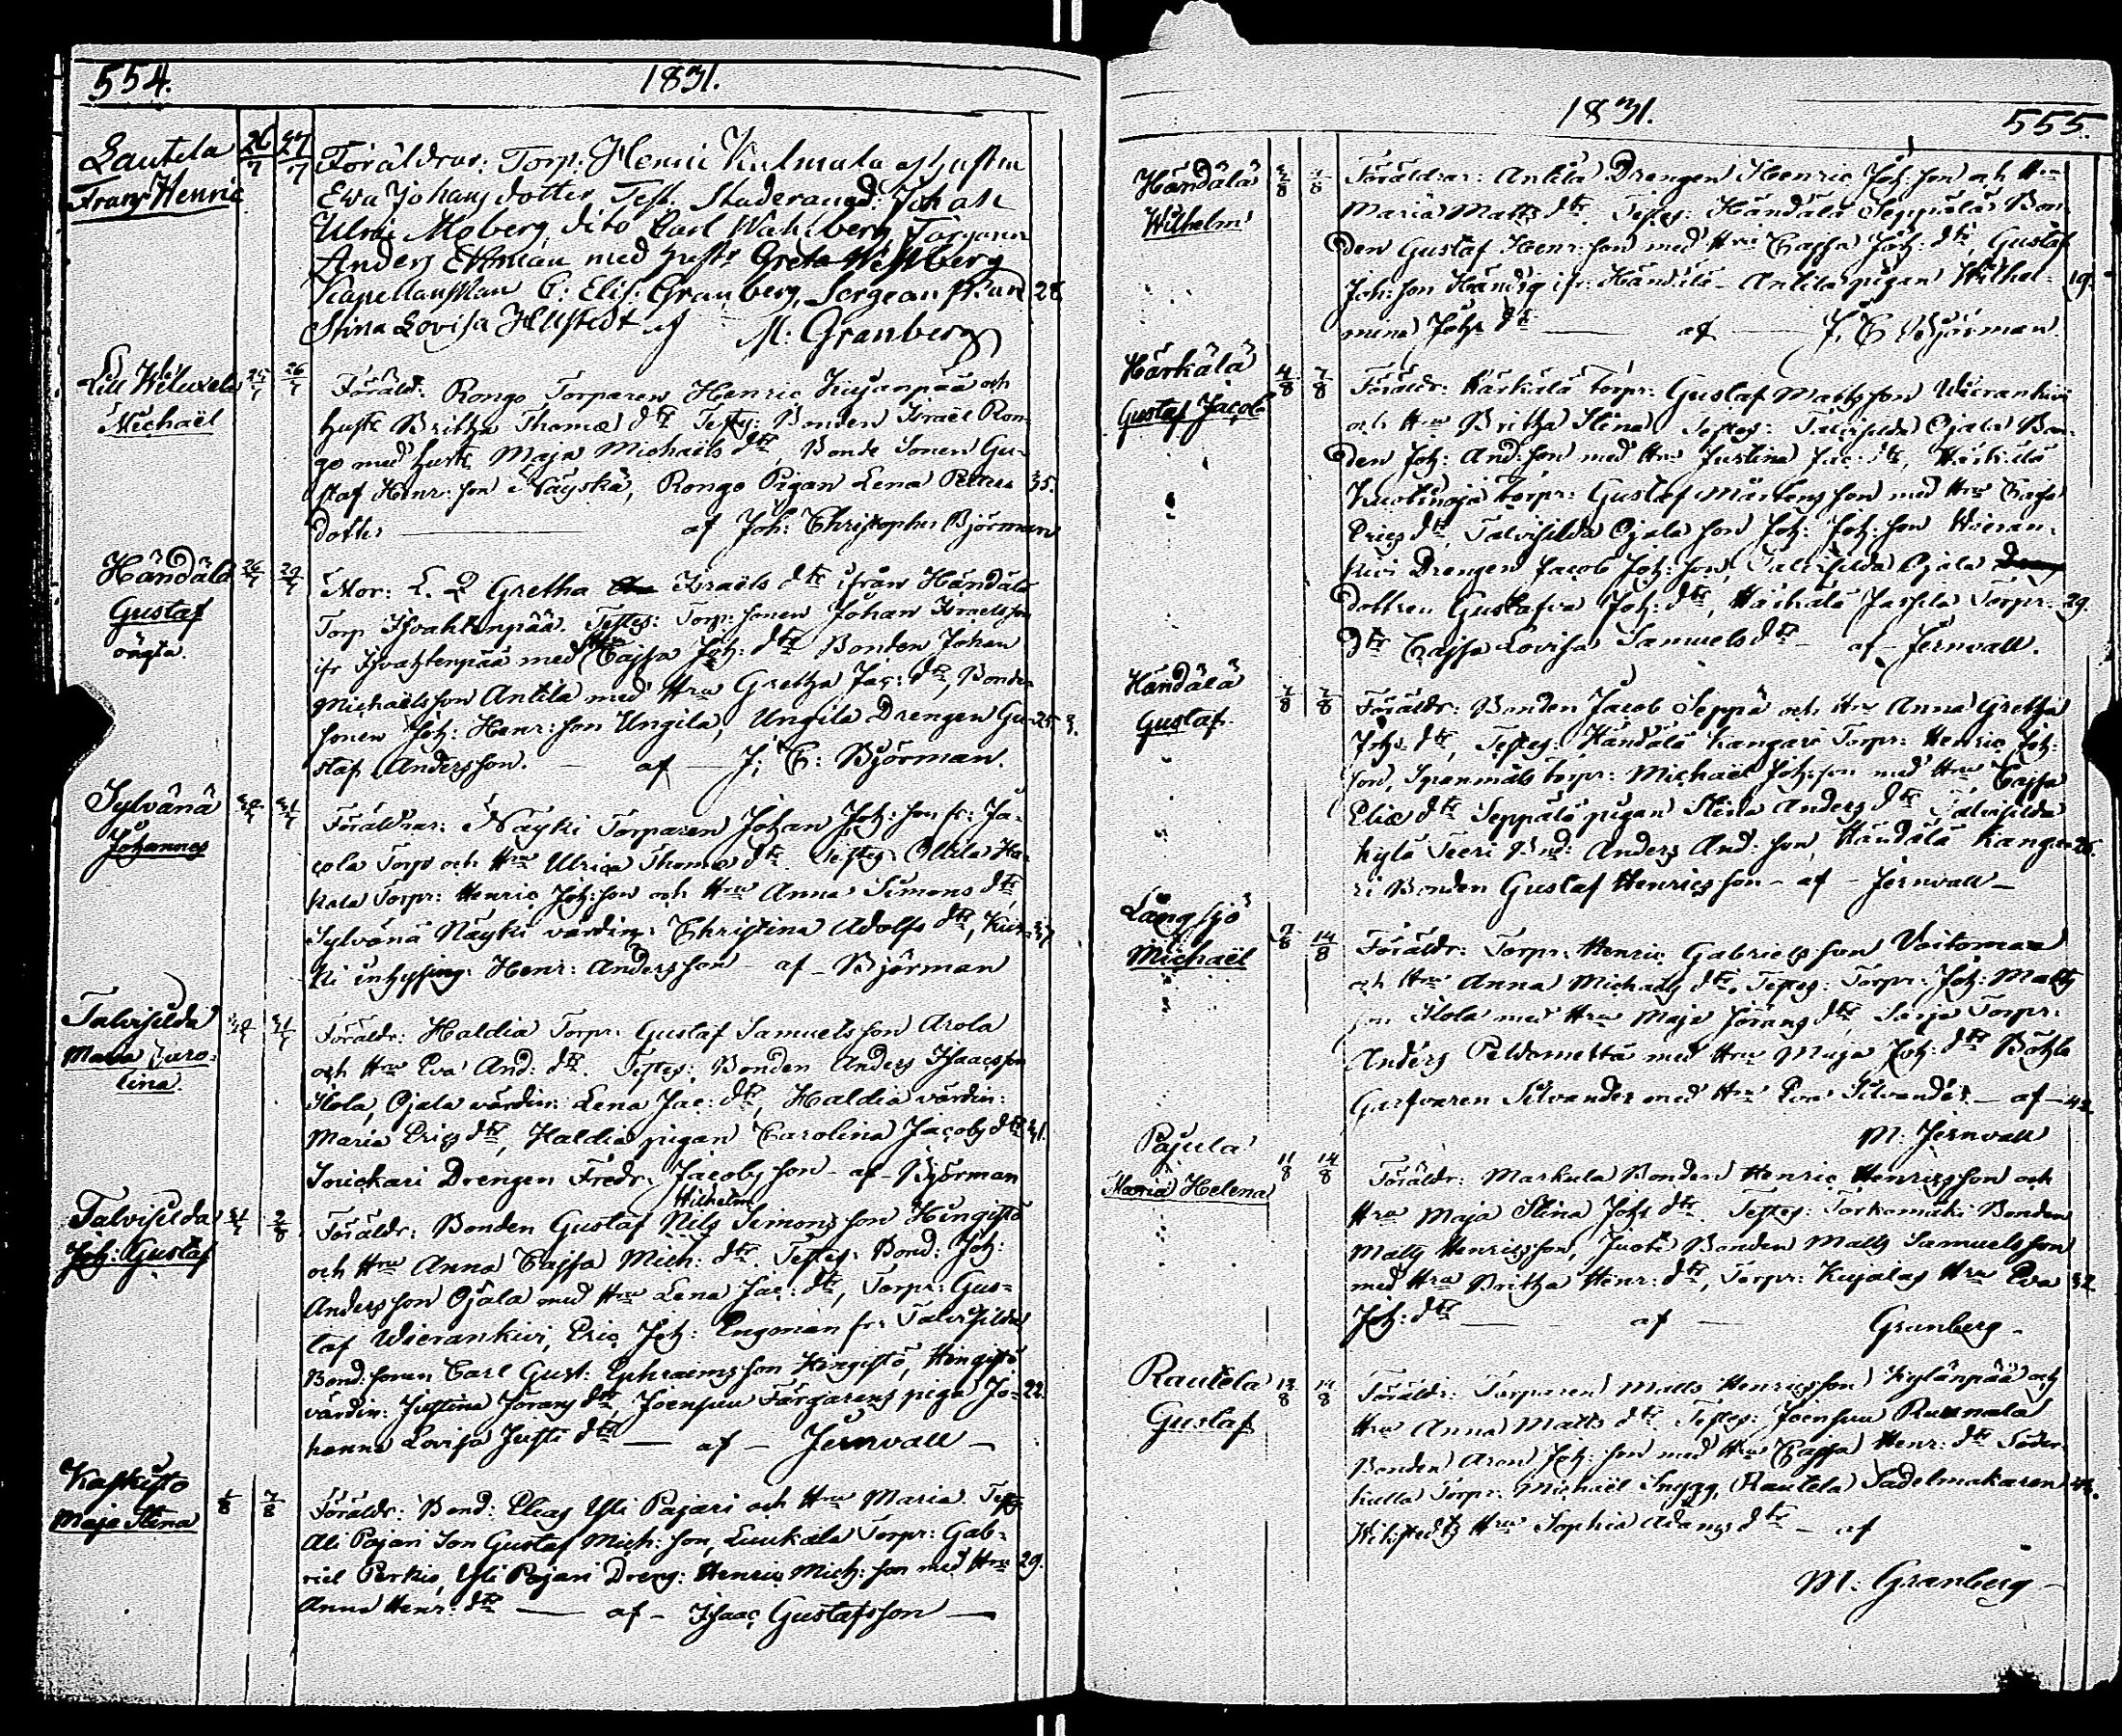 554. 1831.
Lautela 26/7 27/7 Föräldrar: Torp: Henric Kulmala och hustru
Frans Henric Ewa Johans dotter Test. Studerand: Johan
Ulric Moberg, dito Carl Wahlberg, Färgaren
Anders Ekman med hustr Greta Westberg
C: Elis: Granberg, 28
Stina Lovisa Hellstedt af M: Granberg
Lill 25/7 26/7 Föräld: Rongo Torparen Henric Kujanpää och
Michaël hustr Britha Thomæ dtr Testes: Bonden Israël Ron-
go med hustr Maja Michaëls dtr, Bonde Sonen Gu-
staf Henr: son Näyskä, Rongo Pigan Lena Petters 35.
dotter af Joh: Christopher Björman
Händälä 26/7 29/7 Mor: L. Q Gretha Israëls dtr ifrån Händälä
Gustaf Torp Isvahtenpää. Testes: Torp: sonen Johan Israelsson
oägta. ifr Isvahtenpää med Hru Cajsa Joh: dtr Bonden Johan
Michaëlsson Antila med Hru Gretha Jac: dtr, Bonde-
sonen Joh: Henr: son Ungila, Ungila Drengen Gu- 25
staf Andersson. af J: C: Björman.
Sylvänä Föräldrar: Näyki Torparen Johan Joh: son fr: Ja-
Johannes cola Torp och Hru Ulrica Thomæ dtr. Testes: Ollila Ha-
kala Torpr: Henric Joh: son och Hru Anna Simons dtr,
Sylvänä Näyki värdin: Christina Adolfs dtr, Kur-
ki inhysing: Henr: Andersson - af - Björman
Talvisilda Föräldr: Haldia Torpr: Gustaf Samuelsson Arola
Maria Caro- och Hru Eva And: dtr. Testes: Bonden Anders Isaacsson
lina. Ilola, Ojala värdin: Lena Jac: dtr, Haldia värdin:
Maria Erics dtr, Haldia pigan Carolina Jacobs dtr 31.
Sorickari Drengen Fredr: Jacobsson - af - Björman
Wilhelm
Talvisilda 2/8 Föräldr: Bonden Gustaf Nils Simonsson Hingistö
Joh: Gustaf och Hru Anna Cajsa Mich: dtr. Testes: Bond: Joh:
Andersson Ojala med Hru Lena Jac: dtr, Torpr: Gus-
taf Wierankivi, Eric Joh: Engman fr: Talvisilda
Bond: sonen Carl Gust: Ephraimsson Hingistö, Hingistö
värdin: Justina Jörans dtr, Joensuu Färgarens piga Jo- 22
hanna Lovisa Justi dtr — af - Jernvall -
Kaskisto 1/8 7/8 Föräldr: Bond: Elias Yli Pajari och Hru Maria. Test:
Maja Stina Ali Pajari Son Gustaf Mich: son, Luukala Torpr: Gab-
riel Perkio, Yli Pajari Dreng: Henric Mich: son med Hru 29.
Anna Henr: dtr — af - Isaac Gustafsson —
1831. 555.
Händälä 7/8 Föräldrar: Antila Drengen Henric Joh: son och Hru
Wilhelm Maria Matts dtr. Testes: Händälä Seppälä Bon-
den Gustaf Henr: son med Hru Cajsa Joh: dtr, Gustaf
Joh: son Händig ifr: Händälä - Antila pigan Wilhel- 19.
mina Johs dtr — af — J. C Björman.
Härkälä 4/8 7/8 Föräldr: Härkälä Torpr: Gustaf Mattsson Wierankivi
Gustaf Jacob och Hru Britha Stina. Testes: Talvisilda Ojala Bon-
den Joh: And: son med Hru Justina Jac: dtr, Härkälä
Kuotinoja Torpr: Gustaf Mårtensson med Hru Cajsa
Erics dtr, Talvisilda Ojala son Joh: Joh: son Wieran-
kivi Drengen Jacob Joh: son, Talvisilda Ojala
dottren Gustafva Joh: dtr, Härkälä Jassila Torpr: 29.
dtr Cajsa Lovisa Samuels dtr - af - Jernvall.
Händälä 7/8 7/8 Föräldr: Bonden Jacob Seppä och Hru Anna Gretha
Gustaf. Johs: dtr, Testes: Händälä Kangari Torpr: Henric Joh:
son, Torpr: Michaël Joh: son med Hru Cajsa
Eliæ dtr Seppälä pigan Stina Anders dtr Talvisilda
kylä Teeri Bnd: Anders And: son, Händälä Kanga- 25.
ri Bonden Gustaf Henricsson - af - Jernvall -
Långsjö 9/8 14/8 Föräldr: Torpr: Henric Gabrielsson Voitomaa
Michaël och Hru Anna Michaëls dtr. Testes: Torpr: Joh: Matts
son Ilola med Hru Maja Jörans dtr, Sarja Torpr:
Anders Peldometsä med Hru Maja Joh: dtr
Garfvaren Silvander med Hru Eva Silvander - af - 42
M. Jernvall
Pajula 11/8 14/8 Föräldr: Markula Bonden Henric Henricsson och
Maria Helena Hru Maja Stina Johs dtr. Testes: Torkomäki Bonden
Matts Henricsson, Juoti Bonden Matts Samuelsson
med Hru Britha Henr: dtr, Torpr: Kujalas Hru Eva 32
Joh: dtr — af — Granberg -
Rautela 12/8 14/8 Föräldr: Torparen Matts Henricsson Kylänpää och
Gustaf Hru Anna Matts dtr Testes: Joensuu Ruunala
Bonden Aron Joh: son med Hru Cajsa Henr: dtr Söder-
kulla Torpr: Michaël Snygg, Rautela Sadelmakaren
Wikstedts Hru Sophia Adams dtr - af
M: Granberg -